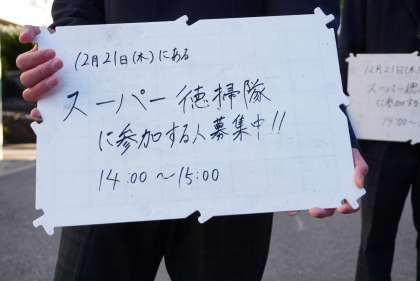 12月21日(木)にある
スーパー徳掃隊
に参加する人募集中!!
14:00～15:00
12月21日(木
スーパー徳
に参加する